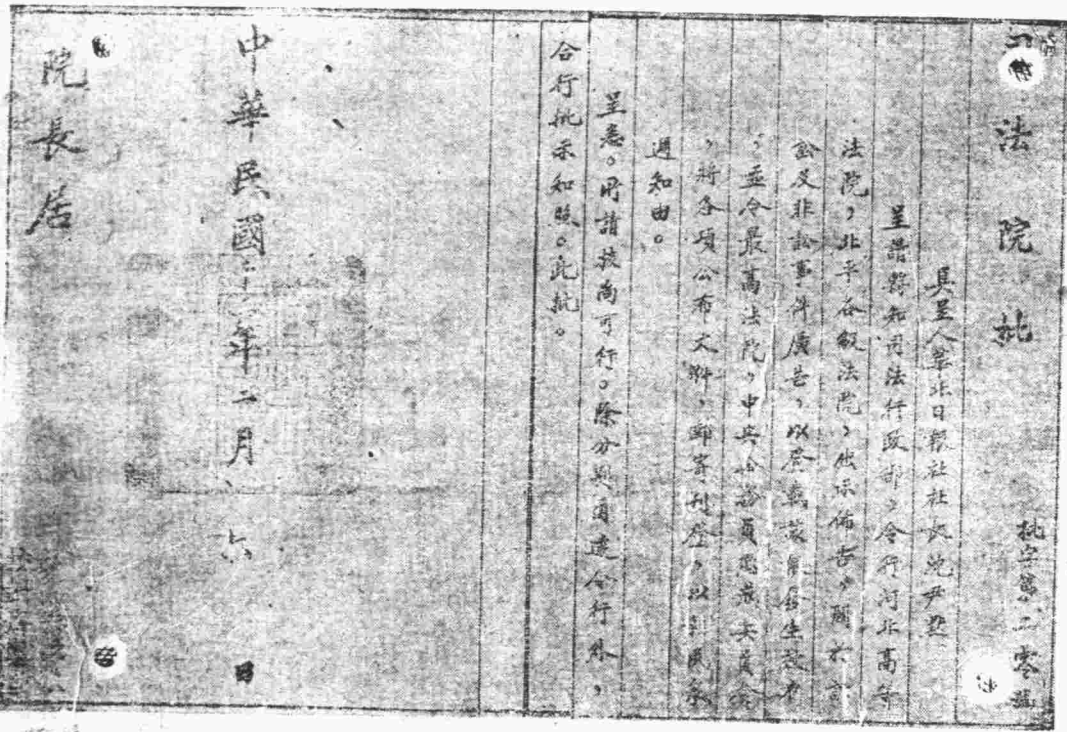 司法院批
批字第二零號
具呈人華北日報社社長沈尹默
呈請將知司法行政部，令行河北高等
法院，北平各級法院，佈告，關於訴
訟及非訟事件廣告，以登載該報發生效力
，並令最高法院，中央公務員懲戒委員會
，將各項公布文件，郵寄刊登，以利民眾
週知由。
呈悉。所請核尚可行。除分別函達令行外，
合行批示知照。此批。
中華民國二十一年二月六日
院長居